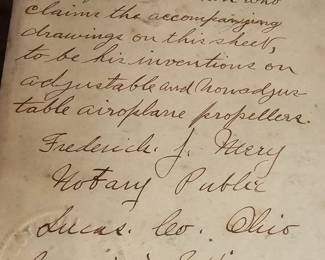 who
claims the accompanying
drawings on this sheet,
to be his inventions on
adjustable and nonadjus
table airoplane propellers.
Frederick. J. Mery
Notary Public
Lucas. Co. Ohio